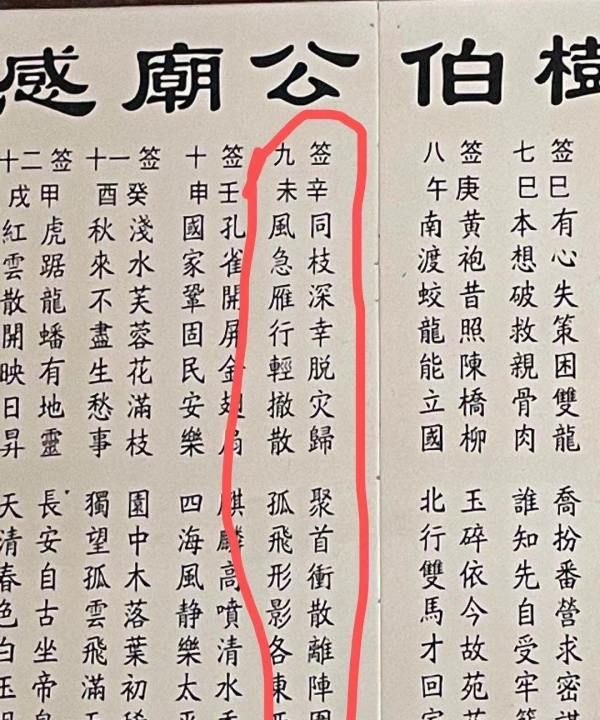 伯公廟感
签巳有心失策困雙龍 喬扮番營求密
七巳本想破救親骨肉 誰知先自受牢
签庚黄袍昔照陳橋柳 玉碎依今故苑
八午南渡蛟龍能立國 北行雙馬才回
签辛同枝深幸脱灾歸 聚首衝散離陣
九未風急雁行輕撤散 孤飛形影各東
签壬孔雀開屏金翅扇 麒麟高噴清水
十申國家鞏固民安樂 四海風静樂太
签癸淺水芙蓉花滿枝 園中木落葉初
十一酉秋來不盡生愁事 獨望孤雲飛滿
签甲虎踞龍蟠有地靈 長安自古坐帝
十二戌紅雲散開映日昇 天清春色白玉